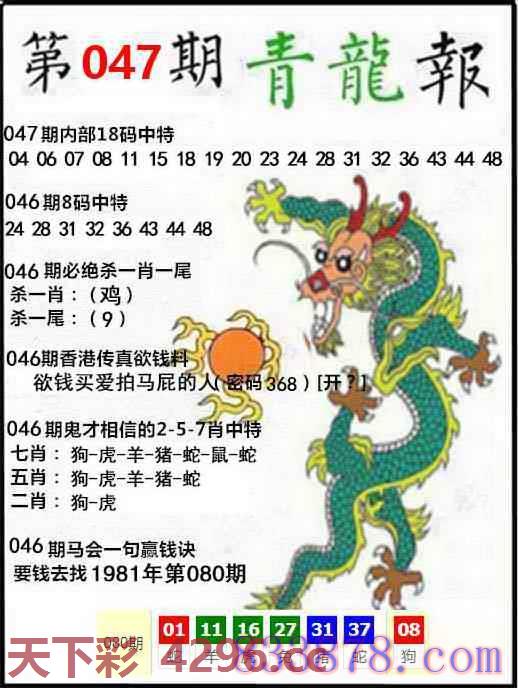 第047期 青龍報
047期内部18码中特
04 06 07 08 11 15 18 19 20 23 24 28 31 32 36 43 44 48
046期8码中特
24 28 31 32 36 43 44 48
046期必绝杀一肖一尾
杀一肖：（鸡）
杀一尾：（9）
046期香港传真欲钱料
欲钱买爱拍马屁的人(密码368)[开?]
046期鬼才相信的2-5-7肖中特
七肖：狗-虎-羊-猪-蛇-鼠-蛇
五肖：狗-虎-羊-猪-蛇
二肖：狗-虎
046期马会一句赢钱诀
要钱去找1981年第080期
080期 01 11 16 27 31 37 08
蛇 羊 虎 兔 猪 蛇 狗
天下彩 4296.cc